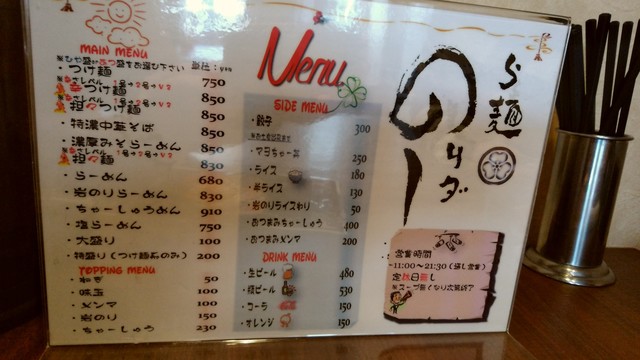 MAIN MENU
単位:yen
・つけ麺 750
辛つけ麺 850
担々つけ麺 850
・特濃中華そば 850
・濃厚みそらーめん 850
担々麺 830
・らーめん 680
・岩のりらーめん 830
・ちゃーしゅうめん 910
・塩らーめん 750
・大盛り 100
・特盛り(つけ麺系のみ) 200
TOPPING MENU
・ねぎ 50
・味玉 100
・メンマ 100
・岩のり 150
・ちゃーしゅう 230
Menu
SIDE MENU
・餃子 300
・マヨちゃー丼 250
・ライス 180
・半ライス 130
・岩のりライスわり 50
・おつまみちゃーしゅう 400
・おつまみメンマ 200
DRINK MENU
・生ビール 480
・瓶ビール 530
・コーラ 150
・オレンジ 150
らー麺
のりダー
営業時間
・11:00～21:30(通し営業)
定休日無し
※スープ無くなり次第終了